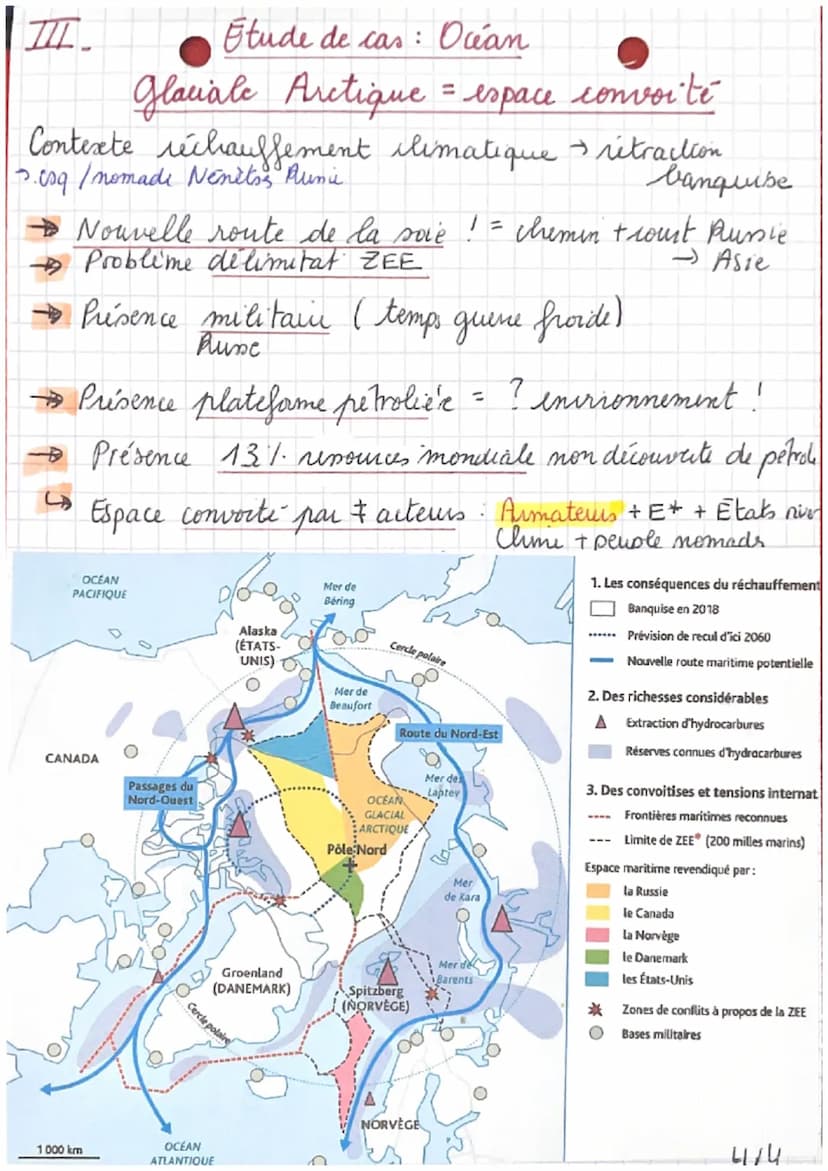 III.
Étude de cas : Océan
Glaciale Arctique = espace convoité
Contexte réchauffement climatique → rétraction
banquise
→ csq / nomade Russie
→ Nouvelle route de la soie ! = chemin + court Russie
→ Asie
→ Problème délimitat ZEE
→ Présence militaire (temps guerre froide)
Russe
→ Présence plateforme petrolière = ? environnement !
→ Présence 13% ressources mondiale non découverte de pétrole
↳ Espace convoité par ≠ acteurs : Armateurs + E* + États
Chine + peuple nomads
OCÉAN
PACIFIQUE
Mer de
Béring
Alaska
(ÉTATS-
UNIS)
Cercle polaire
Mer de
Beaufort
Route du Nord-Est
CANADA
Passages du
Nord-Ouest
Mer des
Laptev
OCÉAN
GLACIAL
ARCTIQUE
Pôle Nord
Mer
de Kara
Groenland
(DANEMARK)
Spitzberg
(NORVÈGE)
Mer de
Barents
Cercle polaire
NORVÈGE
1 000 km
OCÉAN
ATLANTIQUE
1. Les conséquences du réchauffement
Banquise en 2018
Prévision de recul d'ici 2060
Nouvelle route maritime potentielle
2. Des richesses considérables
Extraction d'hydrocarbures
Réserves connues d'hydrocarbures
3. Des convoitises et tensions internat
Frontières maritimes reconnues
Limite de ZEE* (200 milles marins)
Espace maritime revendiqué par :
la Russie
le Canada
la Norvège
le Danemark
les États-Unis
Zones de conflits à propos de la ZEE
Bases militaires
4/4